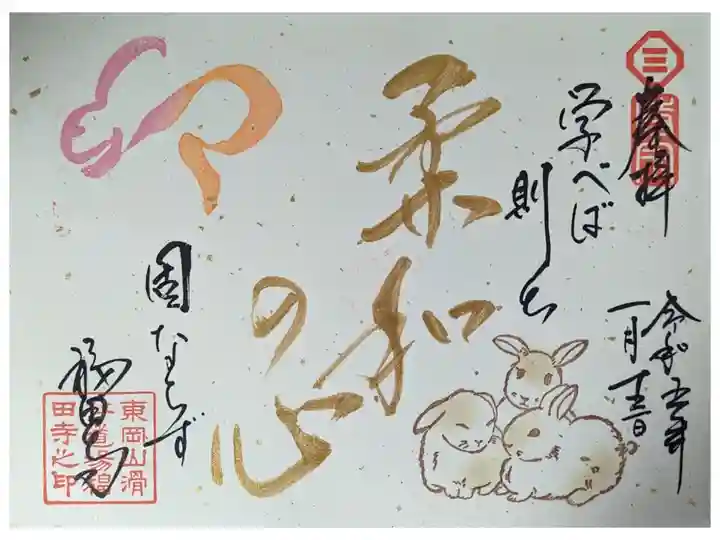 奉拝
三
令和五年
一月
学べば
則ち
柔和
の心
卯
固ならず
福田寺
東岡山滑
田寺之印